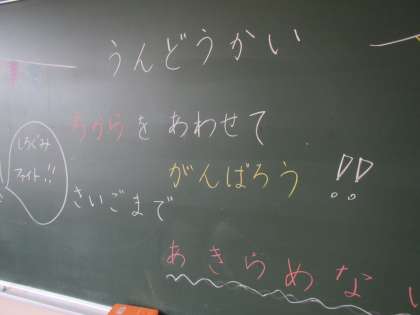 うんどうかい
ちからをあわせて
がんばろう!!
しろぐみ
ファイト!!
さいごまで
あきらめない